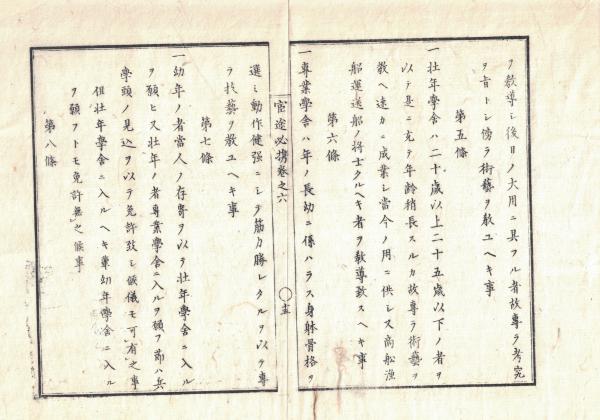 ヲ教導シ後日ノ大用ニ具フル者故專ラ考究
ヲ旨トシ傍ラ術藝ヲ教ユヘキ事
第五條
一壮年學舎ハ二十歳以上二十五歳以下ノ者ヲ
以テ是ニ充テ年齡稍長スルカ故專ラ術藝ヲ
教ヘ速カニ成業シ當今ノ用ニ供シ又商船漁
船運送船ノ將士タルヘキ者ヲ教導致スヘキ事
第六條
一專業學舎ハ年ノ長幼ニ係ハラス身躰骨格ヲ
官途必携巻之六
○十五
選ミ動作健强ニシテ筋力勝レタルヲ以テ專
ラ技藝ヲ教ユヘキ事
第七條
一幼年ノ者當人ノ存寄ヲ以テ壮年學舎ニ入ル
ヲ願ヒ又壮年ノ者專業學舎ニ入ルヲ願フ節ハ兵
學頭ノ見込ヲ以テ免許致シ候儀モ可有之事
但壮年學舎ニ入ルヘキ輩幼年學舎ニ入ル
ヲ願フトモ免許無之候事
第八條